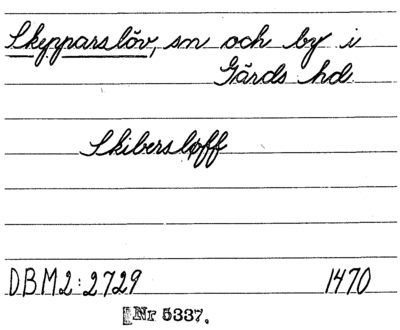 Skepparslöv, sn och by i
Gärds hd
Skibersløff
DBM2:2729 1470
Nr 5337.